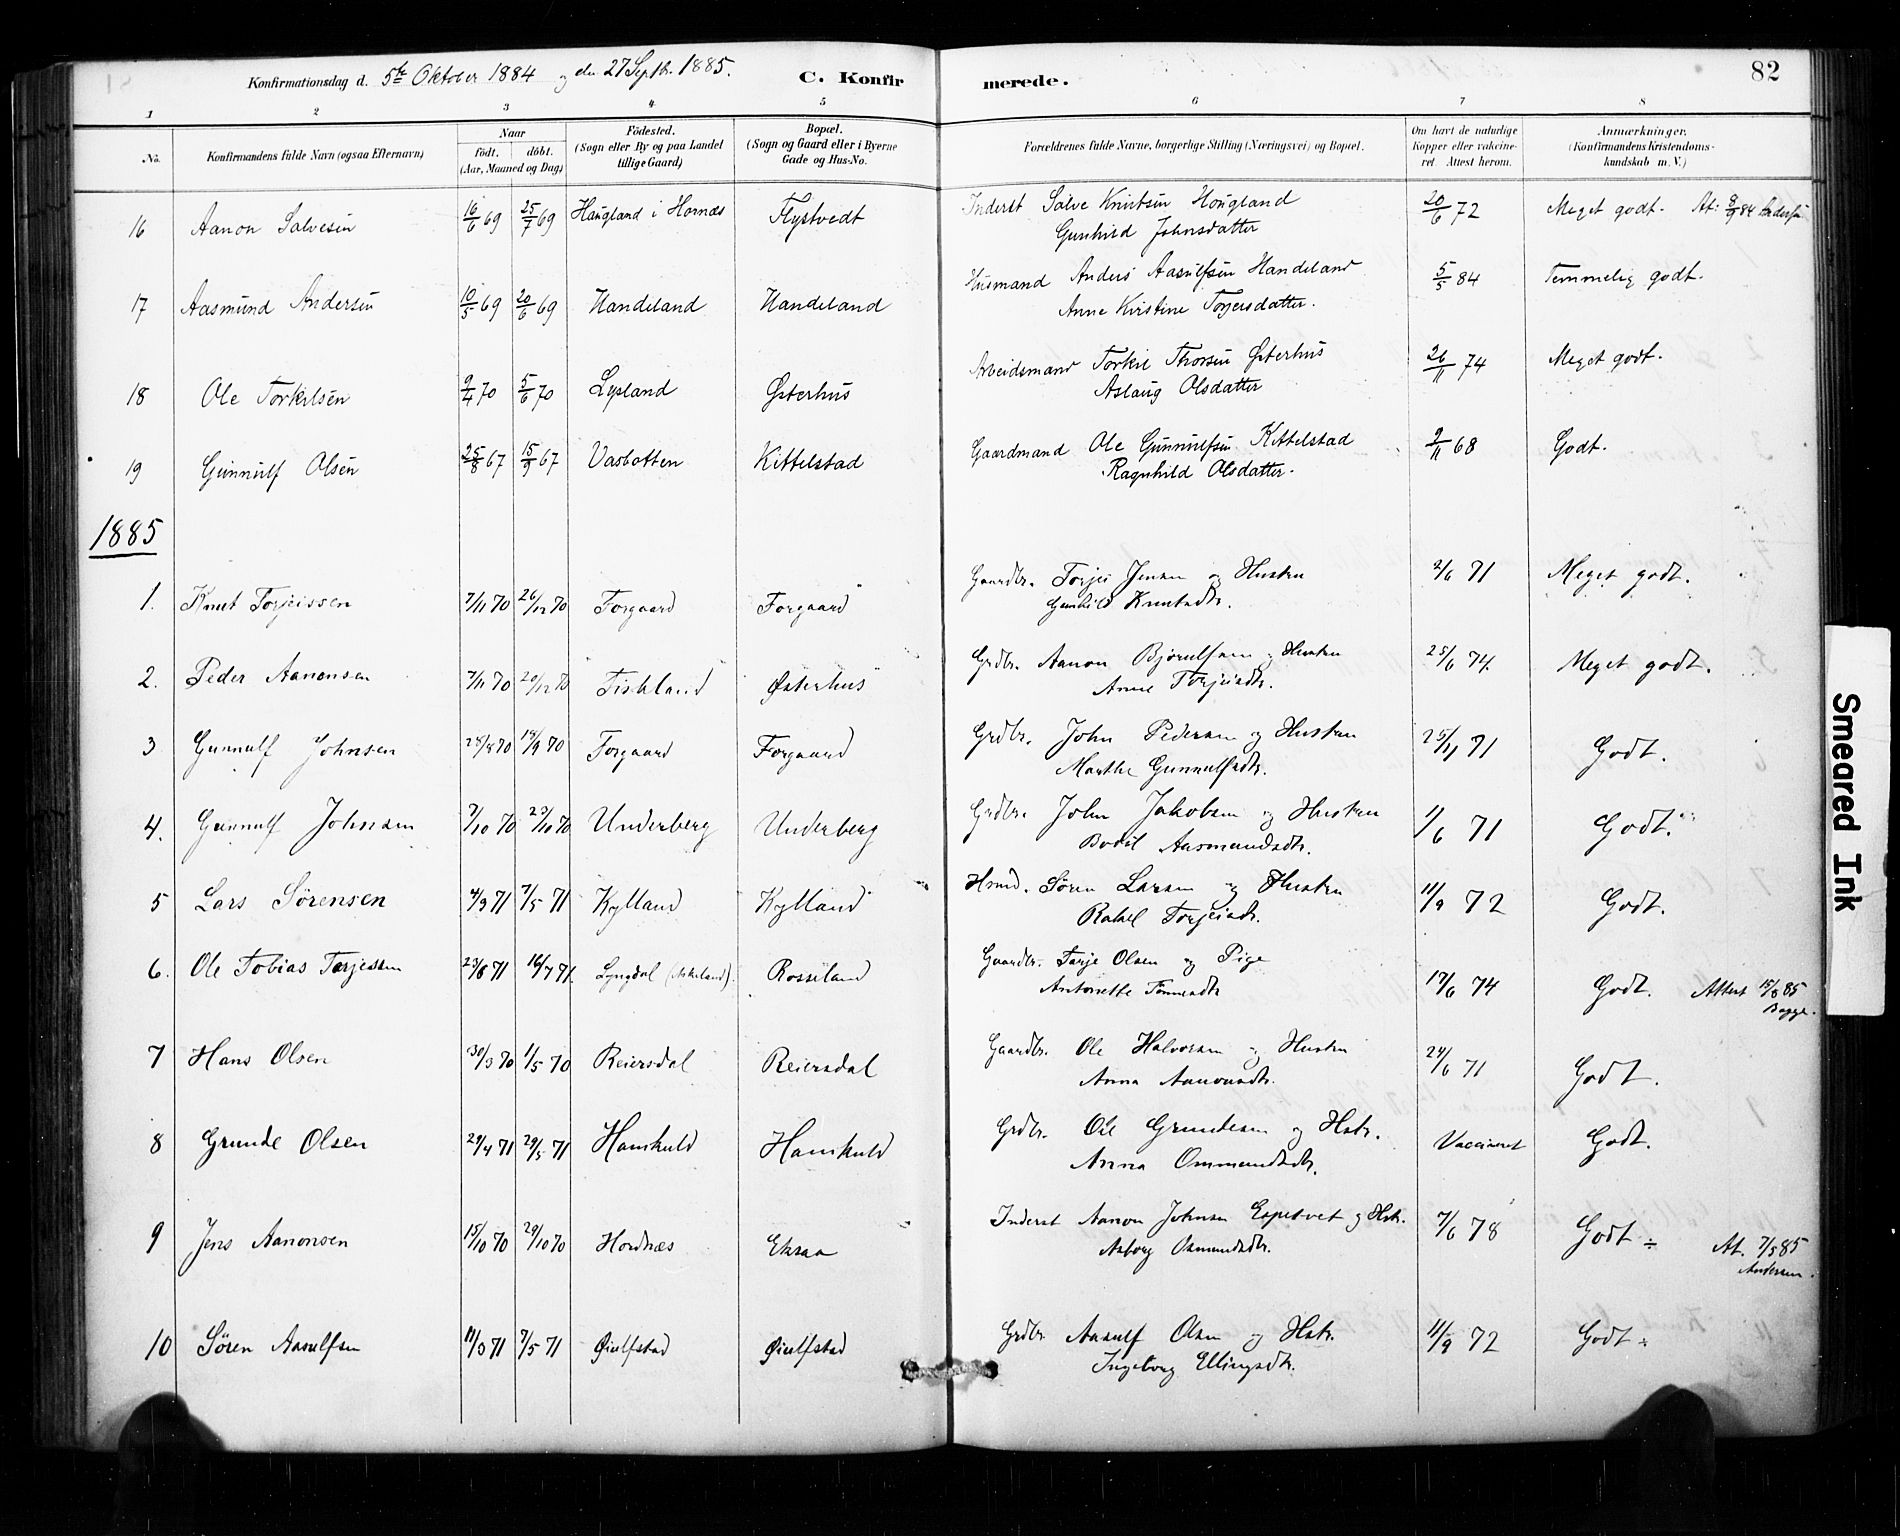 82
Konfirmationsdag d. 5te Oktober 1884 og den 27 Septbr. 1885. C. Konfirmerede.
1 2 3 4 5 6 7 8
No. Konfirmandens fulde Navn (ogsaa Efternavn) Naar født. døbt. (Aar, Maaned og Dag) Fødested. (Sogn eller By og paa Landet tillige Gaard) Bopæl. (Sogn og Gaard eller i Byerne Gade og Hus-No. Forældrenes fulde Navne, borgerlige Stilling (Næringsvei) og Bopæl. Om havt de naturlige Kopper eller vakcineret. Attest herom. Anmærkninger. (Konfirmandens Kristendomskundskab m. V.)
16 Aanon Salvesen 16/6 69 25/7 69 Haugland i Hornæs Flystvedt Inderst Salve Knutsen Hougland 20/6 72 Meget godt. At: 8/9 84
Gunhild Johnsdatter
17 Aasmund Andersen 10/5 69 20/6 69 Handeland Handeland Husmand Anders Aasulfsen Handeland 5/5 84 Temmelig godt.
Anne Kirstine Torjersdatter.
18 Ole Torkilsen 9/4 70 5/6 70 Lysland Østerhus Arbeidsmand Torkil Thorsen Østerhus 26/11 74 Meget godt.
Aslaug Olsdatter
19 Gunnulf Olsen 25/8 67 15/9 67 Vasbotten Kittelstad Gaardmand Ole Gunnulfsen Kittelstad 9/11 68 Godt.
Ragnhild Olsdatter.
1885
1. Knut Torjeissen 7/11 70 26/12 70 Forgaard Forgaard Gaardbr. Torjei Jensen og Hustru 2/6 71 Meget godt.
Gunhild Knutsdtr.
2. Peder Aanonsen 7/11 70 20/12 70 Fiskland Østerhus Grdbr. Aanon Bjorulfsen og Hustru 25/6 74. Meget godt.
Anne Torjeisdtr.
3 Gunnulf Johnsen 28/8 70 18/9 70 Forgaard Forgaard Grdbr. John Pedersen og Hustru 25/11 71 Godt.
Marthe Gunnulfsdtr.
4. Gunnulf Johnsen 7/10 70 23/10 70 Underberg Underberg Grdbr. John Jakobsen og Hustru 1/6 71 Godt.
Bodil Aasmundsdtr.
5 Lars Sørensen 4/3 71 7/5 71 Kylland Kylland Hsmd. Søren Larsen og Hustru 11/9 72 Godt.
Rakel Torjeisdr.
6. Ole Tobias Tarjessen 23/6 71 16/7 71. Lyngdal Rosseland Gaardbr. Tarje Olsen og Pige 17/6 74 Godt. Attest 15/8 85
Antonette Tønnesdtr Bugge.
7 Hans Olsen 30/3 70 1/5 70 Reiersdal Reiersdal Gaardbr. Ole Halvorsen og Hustru 24/6 71 Godt.
Anna Aanonsdtr.
8 Grunde Olsen 29/4 71 29/5 71 Hamkuld Hamkuld Grdbr. Ole Grundesen og Hstr. Vaccineret Godt.
Anna Ommundsdtr.
9 Jens Aanonsen 15/10 70 29/10 70 Hordnæs Eksaa Inderst Aanon Johnsen Espetvet og Hstr. 7/6 78 Godt ÷ At. 7/5 85
Asborg Osmundsdtr. Andersen.
10 Søren Aasulfsen 11/3 71 7/5 71 Øiulfstad Øiulfstad Grdbr Aasulf Olsen og Hstr. 11/9 72 Godt ÷
Ingeborg Ellingsdtr.
Smeared Ink